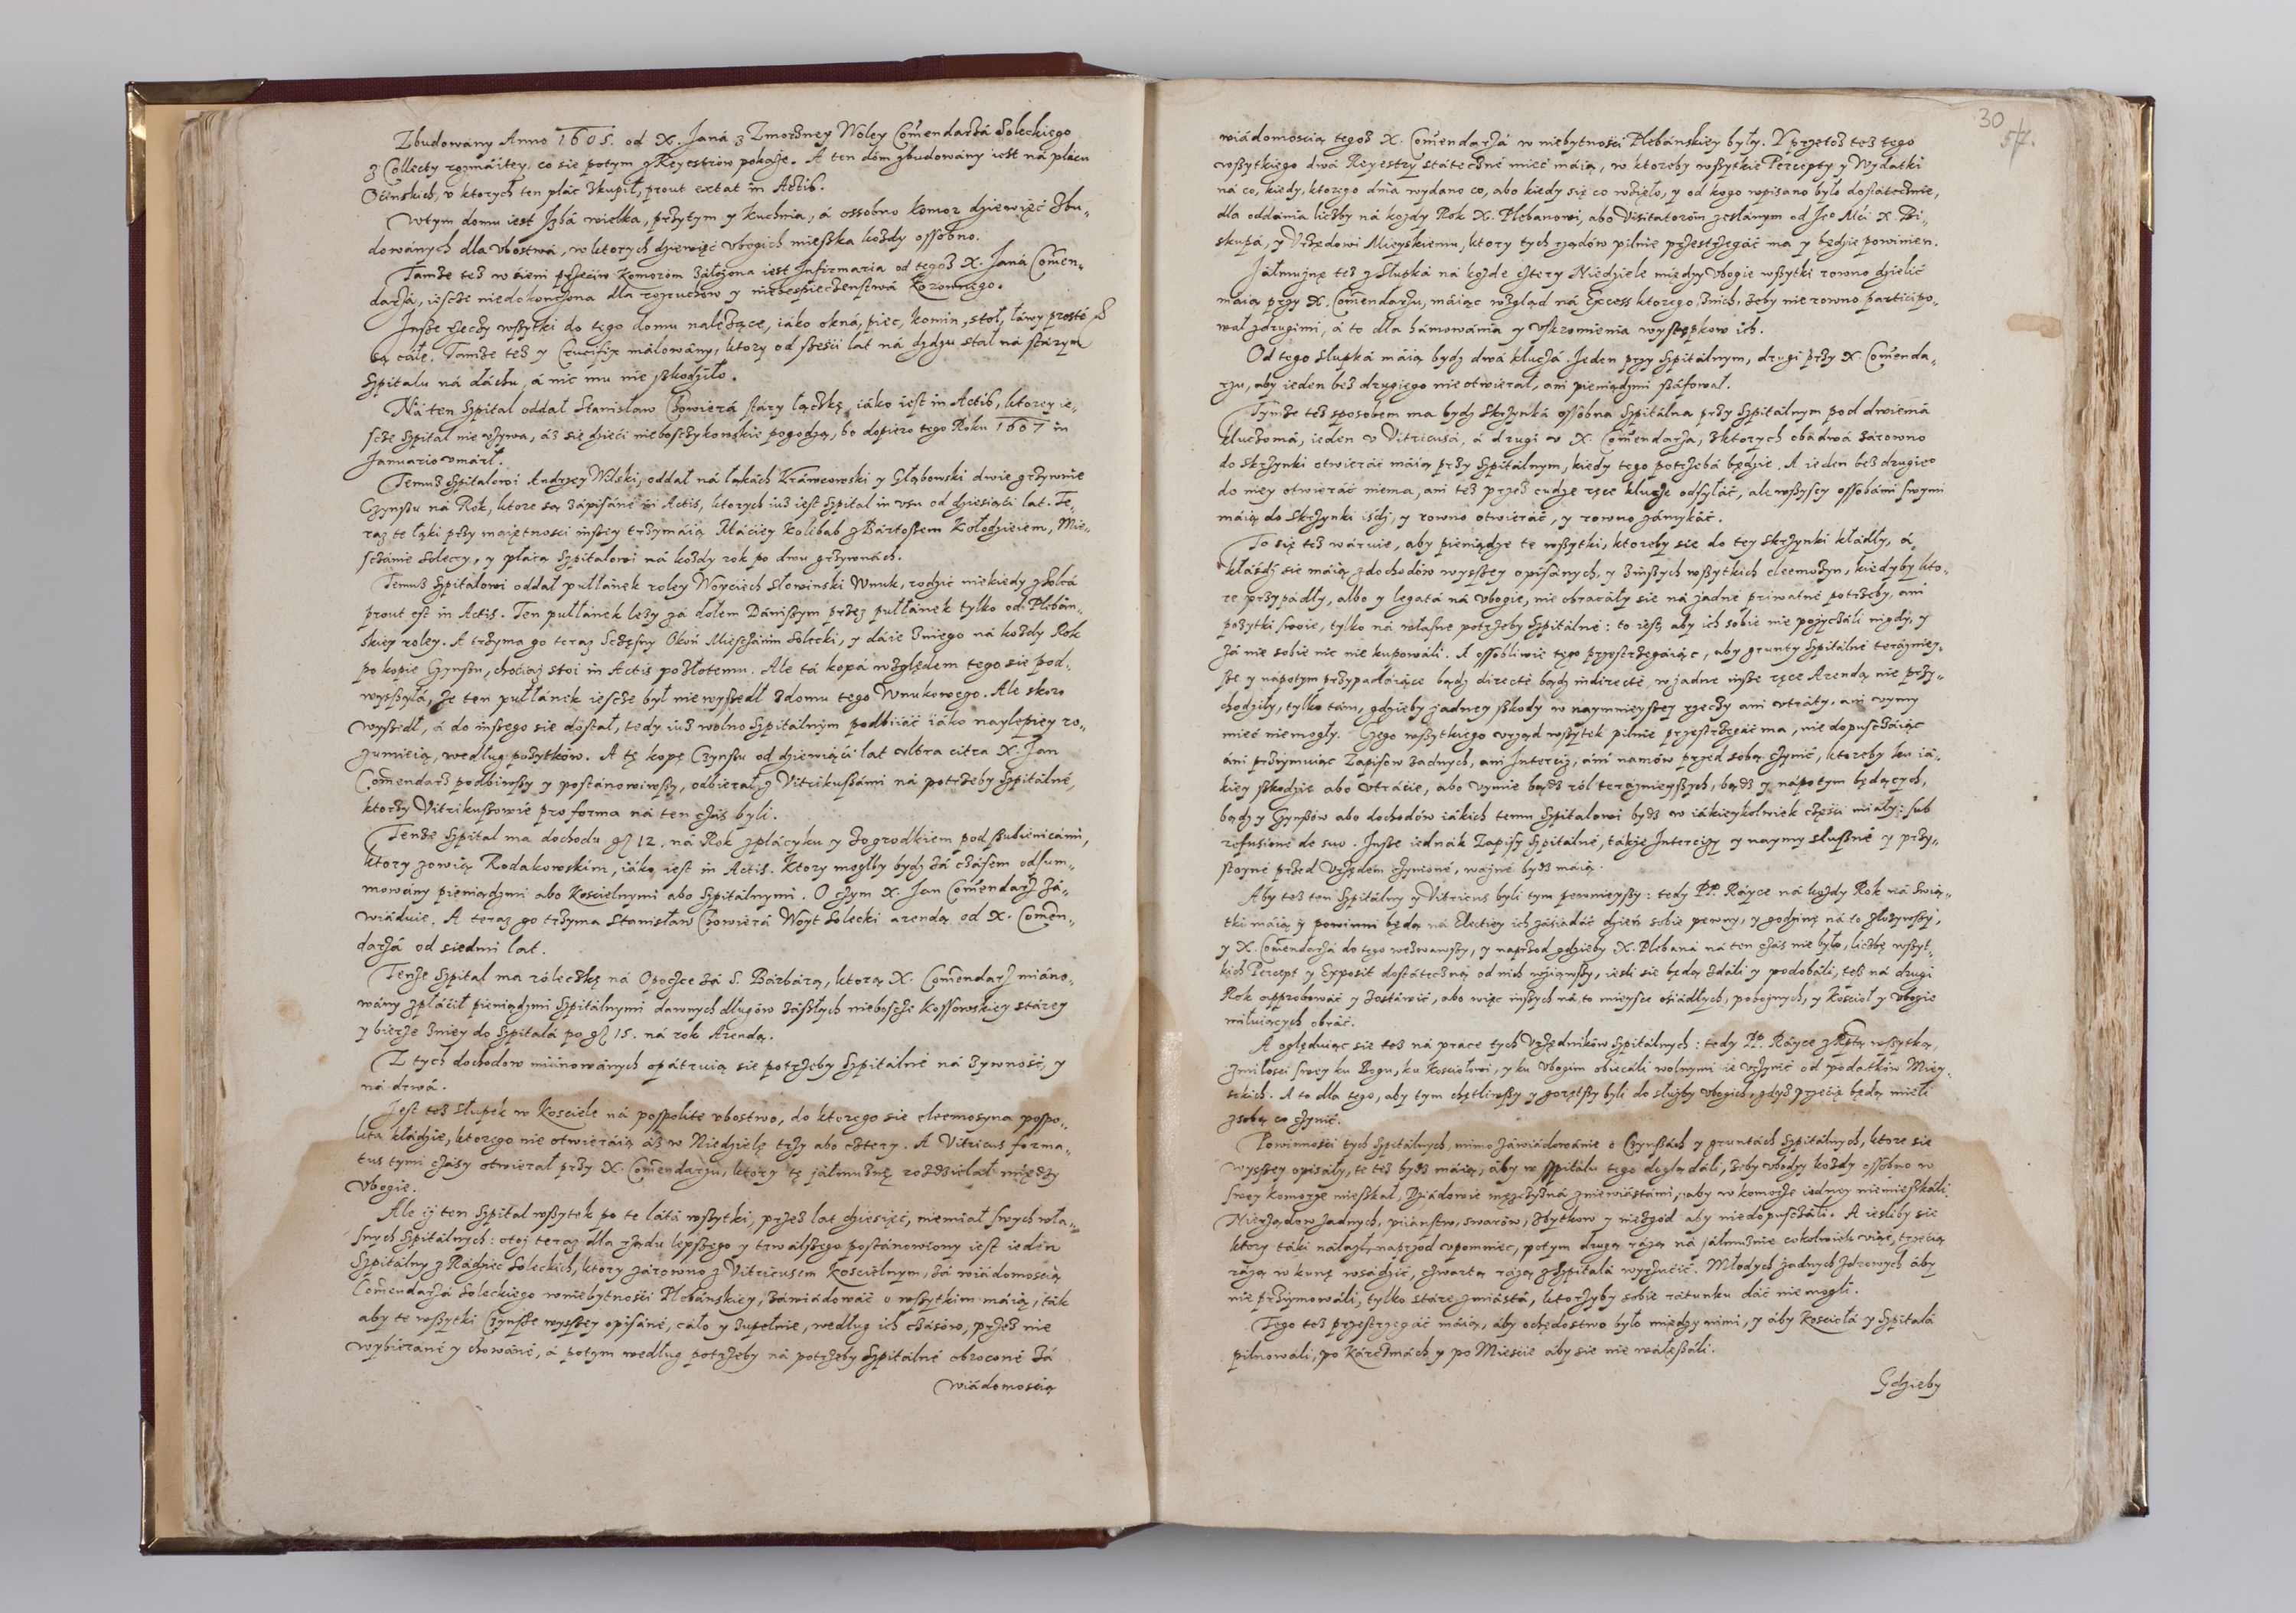 Zbudowány Anno 1605. od X. Janá z Zmorzney Woley Comendarżá Soleckiego
z Collecty rozmáitey, co sie potym z Reyestrow pokaże. A ten dóm zbudowány iest ná plácu
v ktorych ten plác skupił, prout extat in Actis.
Wtym domu iest Izbá wielka, przytym y kuchnia, á ossobno komor dziewięć zbu„
dowánych dla vbostwá, w ktorych dziewięć vbogich mieszka kożdy ossobno.
Tamże też w sieni przeciw komoróm záłożona iest Infirmaria od tegoż X. Janá Comen„
darżá, ieszcze niedokończona dla rozruchow y niebespieczenstwá Koronnego.
Insze rzeczy wszytki do tego domu należące, iáko okná, piec, komin, stoł, łáwy prosté
są całe. Tamże też y Crucifix málowány, ktory od sześci lat ná dżdżu stał ná stárym
Szpitalu ná dáchu, á nic mu nie szkodziło.
Ná ten Szpital oddał Stanisław Czowierá stáry łączkę, iáko iest in Actis, ktorey ie„
scze Szpital nie vżywa, áż się dzieci nieboszczykowskie pogodzą, bo dopiero tego Roku 1607 in
Januario vmárł.
Temuż Szpitalowi Andrzey Wilski, oddał ná łąkách Kráwcowski y Głąbowski dwie grzywnie
Czynszu ná Rok, ktore są zápisáne in Actis, ktorych iuż iest Szpital in vsu od dziesiąci lat. Te„
raz te łąki przy maiętnosci inszey trzymáią Máciey Kolibab z Bártoszem Kołodzieiem, Mie„
sczánie Soleccy, y płácą Szpitalowi ná kożdy rok po dwu grzywnách.
Temuż Szpitalowi oddał pułłánek roley Woyciech Słowinski Wnuk, rodzic niekiedy z Solcá
prout est in Actis. Ten pułłánek leży zá dołem Dániszym przez pułłánek tylko od Plebán„
skiey roley. A trzyma go teraz Szczęsny Okoń Miesczánin Solecki, y dáie zniego ná kożdy Rok
po kopie Czynszu, chociaż stoi in Actis po złotemu. Ale tá kopá względem tego sie pod„
wyszszyłá, że ten pułłánek iescze był nie wyszedł z domu tego Wnukowego. Ale skoro
wyszedł, á do inszego sie dostał, tedy iuż wolno Szpitálnym podbiiáć iáko naylepiey ro„
zumieią, według pożytków. A tę kopę Czynszu od dziewiąci lat vltra citra X. Jan
Comendarz podbiwszy y postánowiwszy, odbierał z Vitrikuszámi ná potrzeby Szpitálné,
ktorzy Vitrikuszowie pro forma ná ten czás byli.
Tenże Szpital ma dochodu gł 12. ná Rok z plácyku y zogrodkiem pod szubienicámi,
ktory zowią Rodakowskim, iáko iest in Actis. Ktory mogłby bydź zá czásem odsum„
mowány pieniądzmi abo Koscielnymi abo Szpitálnymi. O czym X. Jan Comendarz zá„
wiáduie. A teraz go trzyma Stanisław Czowierá Woyt Solecki arendą od X. Comen„
darżá od siedmi lat.
Tenże Szpital ma róleczkę ná Opoczce zá S. Bárbárą, ktorą X. Comendarz miáno„
wány zpłácił pieniądzmi Szpitálnymi dawnych długów zászłych nieboszcze Kossowskiey stárey
y bierze zniey do Szpitalá po gł 15. ná rok Arendą.
Z tych dochodow miánowánych opátruią sie potrzeby Szpitálné ná żywność, y
ná drwá.
Jest też słupek w Kosciele ná pospolite vbostwo, do ktorego sie eleemosyna pospo„
lita kłádzie, ktorego nie otwieráią áż w Niedzielę trzy abo cztery. A Vitricus forma„
tus tymi czásy otwierał przy X. Comendarzu, ktory tę jáłmużnę rozdzielał między
vbogie.
Ale iż ten Szpital wszytek po te látá wszytki, przez lat dziesięć, niemiał swych wła„
snych Szpitálnych: otoż teraz dla rządu lepszego y trwálszego postánowiony iest ieden
Szpitálny z Rádziec Soleckich, ktory zárowno z Vitricusem Koscielnym, zá wiádomoscią
Comendarżá Soleckiego w niebytności Plebánskiey, záwiádowáć o wszytkim máią, ták
aby te wszytki Czynsze wyszszey opisáné, cáło y zupełnie, według ich czásów, przez nie
wybiéráné y chowáné, á potym według potrzeby ná potrzeby Szpitálné obroconé zá
wiádomoscią
30
57.
wiádomoscią tegoż X. Comendarżá w niebytności Plebánskiey były. Y przetoż też tego
wszytkiego dwá Reyestry státeczné mieć máią, w ktoreby wszytkie Percepty y Wydatki
ná co, kiedy, ktorego dnia wydano co, abo kiedy się co wzięło, y od kogo wpisano było dostátecznie,
dla oddánia liczby ná kożdy Rok X. Plebanowi, abo Visitatoróm zesłánym od Jeo Mći X. Bi„
skupá, y Vrzędowi Mieyskiemu, ktory tych rządów pilnie przestrzegáć ma y będzie powinien.
Jáłmużnę też z Słupká ná kożde cztery Niedziele między vbogie wszytki rowno dzielić
máią przy X. Comendarzu, máiąc wzgląd ná Excess ktorego znich, żeby nie rowno participo„
wał zdrugimi, á to dla hámowánia y vskromienia występkow ich.
Od tego słupká máią bydź dwá kluczá. Jeden przy Szpitálnym, drugi przy X. Comenda„
rzu, aby ieden bez drugiego nie otwierał, ani pieniądzmi száfował.
Tymże też sposobem ma bydź Skrzynká ossobna Szpitálna przy Szpitálnym pod dwiemá
kluczomá, ieden v Vitricusá, á drugi v X. Comendarżá, z ktorych obádwá zárowno
do Skrzynki otwieráć máią przy Szpitálnym, kiedy tego potrzebá będzie. A ieden bez drugiego
do niey otwieráć niema, ani też przez cudze ręce klucze odsyłáć, ale wszyscy ossobámi swymi
máią do Skrzynki iśdź, y rowno otwieráć, y rowno zámykáć.
To się też wáruie, aby pieniądze te wszytki, ktoreby sie do tey Skrzynki kłádły, á
kłáśdź sie máią z dochodów wyszszey opisánych, y z inszych wszytkich eleemozyn, kiedyby kto„
re przypádły, albo y legatá ná vbogie, nie obracáły sie ná żadné priwatné potrzeby, ani
pożytki swoie, tylko ná własné potrzeby Szpitálné: to iest, aby ich sobie nie pożyczáli nigdy, y
zá nie sobie nic nie kupowáli. A ossobliwie tego przestrzegáiąc, aby grunty Szpitálné teráźniey„
sze y nápotym przypadáiące bądź directé bądź indirecté, w żadne insze ręce Arendą nie przy„
chodziły, tylko tám, gdzieby żadney szkody w naymnieyszey rzeczy ani vtráty, ani vymy
mieć niemogły. Czego wszytkiego vrząd wszytek pilnie przestrzegáć ma, nie dopusczáiąc
áni przyimuiąc Zapisow żadnych, ani Interciż, áni namów przed sobą czynić, ktoreby ku iá„
kiey szkodzie abo vtrácie, abo vymie bądź ról teráznieyszych, bądź y nápotym będących,
bądź y Czynszów abo dochodów iákich temu Szpitalowi bydź w iákieykolwiek części miáły: sub
refusione de suo. Insze iednák Zapisy Szpitálné, tákże Intercizy y naymy słuszné y przy„
stoyné przed Vrzędem czynioné, ważné bydź máią.
Aby też ten Szpitálny y Vitricus byli tym pewnieyszy: tedy PP. Ráyce ná kożdy Rok ná Swią„
tki máią y powinni będą ná Electiey ich zásiádáć dzień sobie pewny, y godzinę ná to złożywszy,
y X. Comendarżá do tego wezwawszy, y naprzod gdzieby X. Plebaná ná ten czás nie było, liczbę wszyt„
kich Percept y Exposit dostáteczną od nich wziąwszy, iesli sie będą zdáli y podobáli, też ná drugi
Rok approbowáć y zostáwić, abo więc inszych ná to mieysce osiádłych, pobożnych, y Kościoł y vbogie
miłuiących obráć.
A oględuiąc sie też ná prace tych Vrzędników Szpitálnych: tedy PP. Ráyce z Rzptą wszytką,
z miłości swey ku Bogu, ku Kosciołowi, y ku vbogim obiecáli wolnymi ie vczynić od podatków Miey„
sckich. A to dla tego, aby tym chętliwszy y gorętszy byli do służby vbogich, gdyż przecię będą mieli
z sobą co czynić.
Powinności tych Szpitálnych, mimo záwiádowánie o Czynszách y gruntách Szpitálnych, ktore sie
wyszszey opisáły, te też bydź máią, áby w Szpitálu tego doglądáli, żeby vbodzy kożdy ossobno w
swey komorze mieszkał, Dziádowie męzczyzná z niewiástámi, aby w komorze iedney niemieszkáli.
Nierządow żadnych, piiánstw, swarów, zbytkow y niezgod aby niedopusczáli. A iesliby sie
ktory táki nálazł, naprzod vpomniec, potym drugą rázą ná jáłmużnie cokolwiek vięć, trzecią
rázą w kunę wsádzić, czwartą rázą z Szpitalá wyrzucić. Młodych żadnych zdrowych áby
nie przyimowáli, tylko stáre z miástá, ktorzyby sobie rátunku dáć nie mogli.
Tego też przestrzegáć máią, áby ochędostwo było między nimi, y áby Kosciołá y Szpitalá
pilnowáli, po Kárczmách y po Mieście áby sie nie wáłęszáli.
Gdzieby